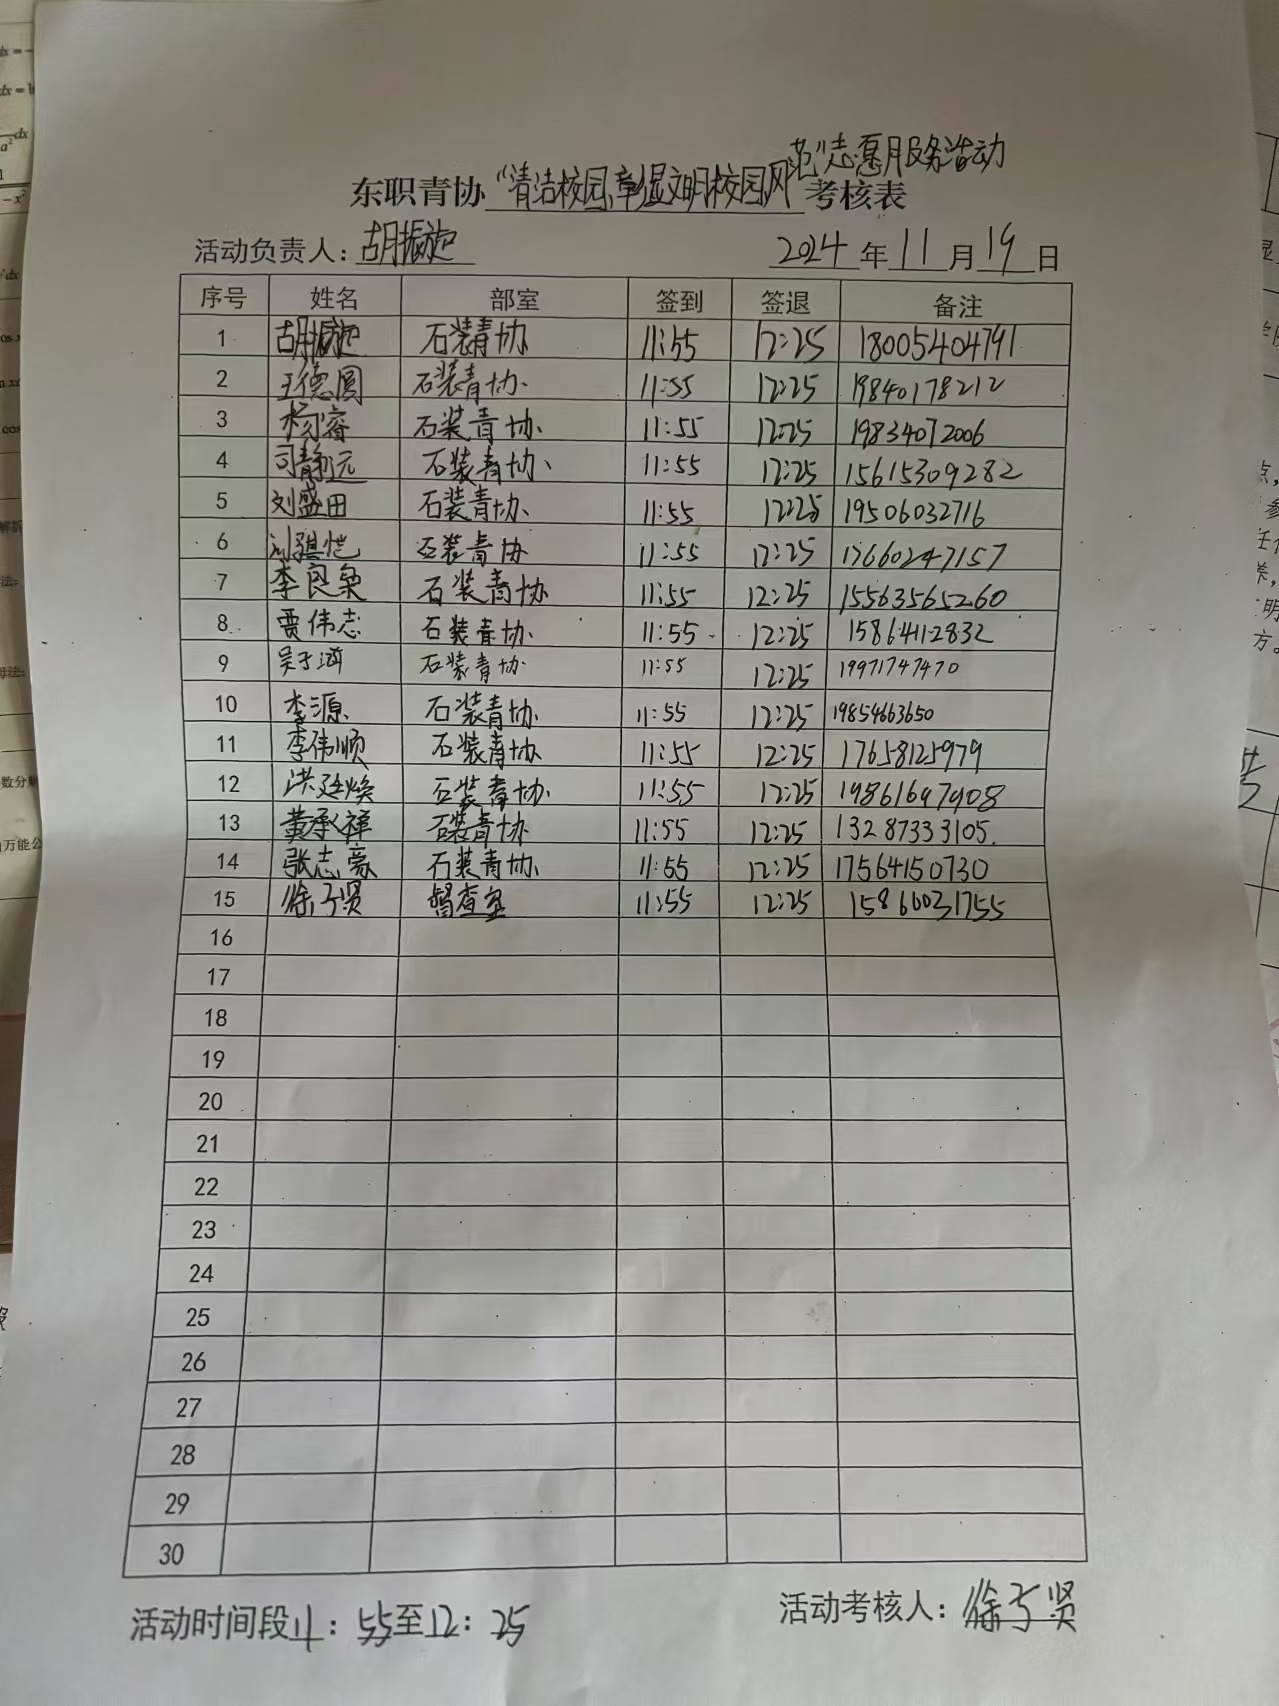 范"志愿服务活动
东职青协"清洁校园,彰显文明校园风考核表
活动负责人:胡振旋 2024年11月19日
序号 姓名 部室 签到 签退 备注
1 胡振旋 石装青协 11:55 12:25 18005404791
2 王德圆 石装青协 11:55 12:25 19840178212
3 杨睿 石装青协 11:55 12:25 19834072006
4 司静远 石装青协 11:55 12:25 15615309282
5 刘盛田 石装青协 11:55 12:25 19506032716
6 刘骐恺 石装青协 11:55 12:25 17660247157
7 李良枭 石装青协 11:55 12:25 15563565260
8 贾伟志 石装青协 11:55 12:25 15864112832
9 吴子涵 石装青协 11:55 12:25 19971747470
10 李源 石装青协 11:55 12:25 19854663650
11 李伟顺 石装青协 11:55 12:25 17658125979
12 洪廷焕 石装青协 11:55 12:25 19861697908
13 黄承禅 石装青协 11:55 12:25 13287333105
14 张志豪 石装青协 11:55 12:25 17564150730
15 徐子贤 督查室 11:55 12:25 15860031755
16
17
18
19
20
21
22
23
24
25
26
27
28
29
30
活动时间段11:55至12:25 活动考核人:徐子贤